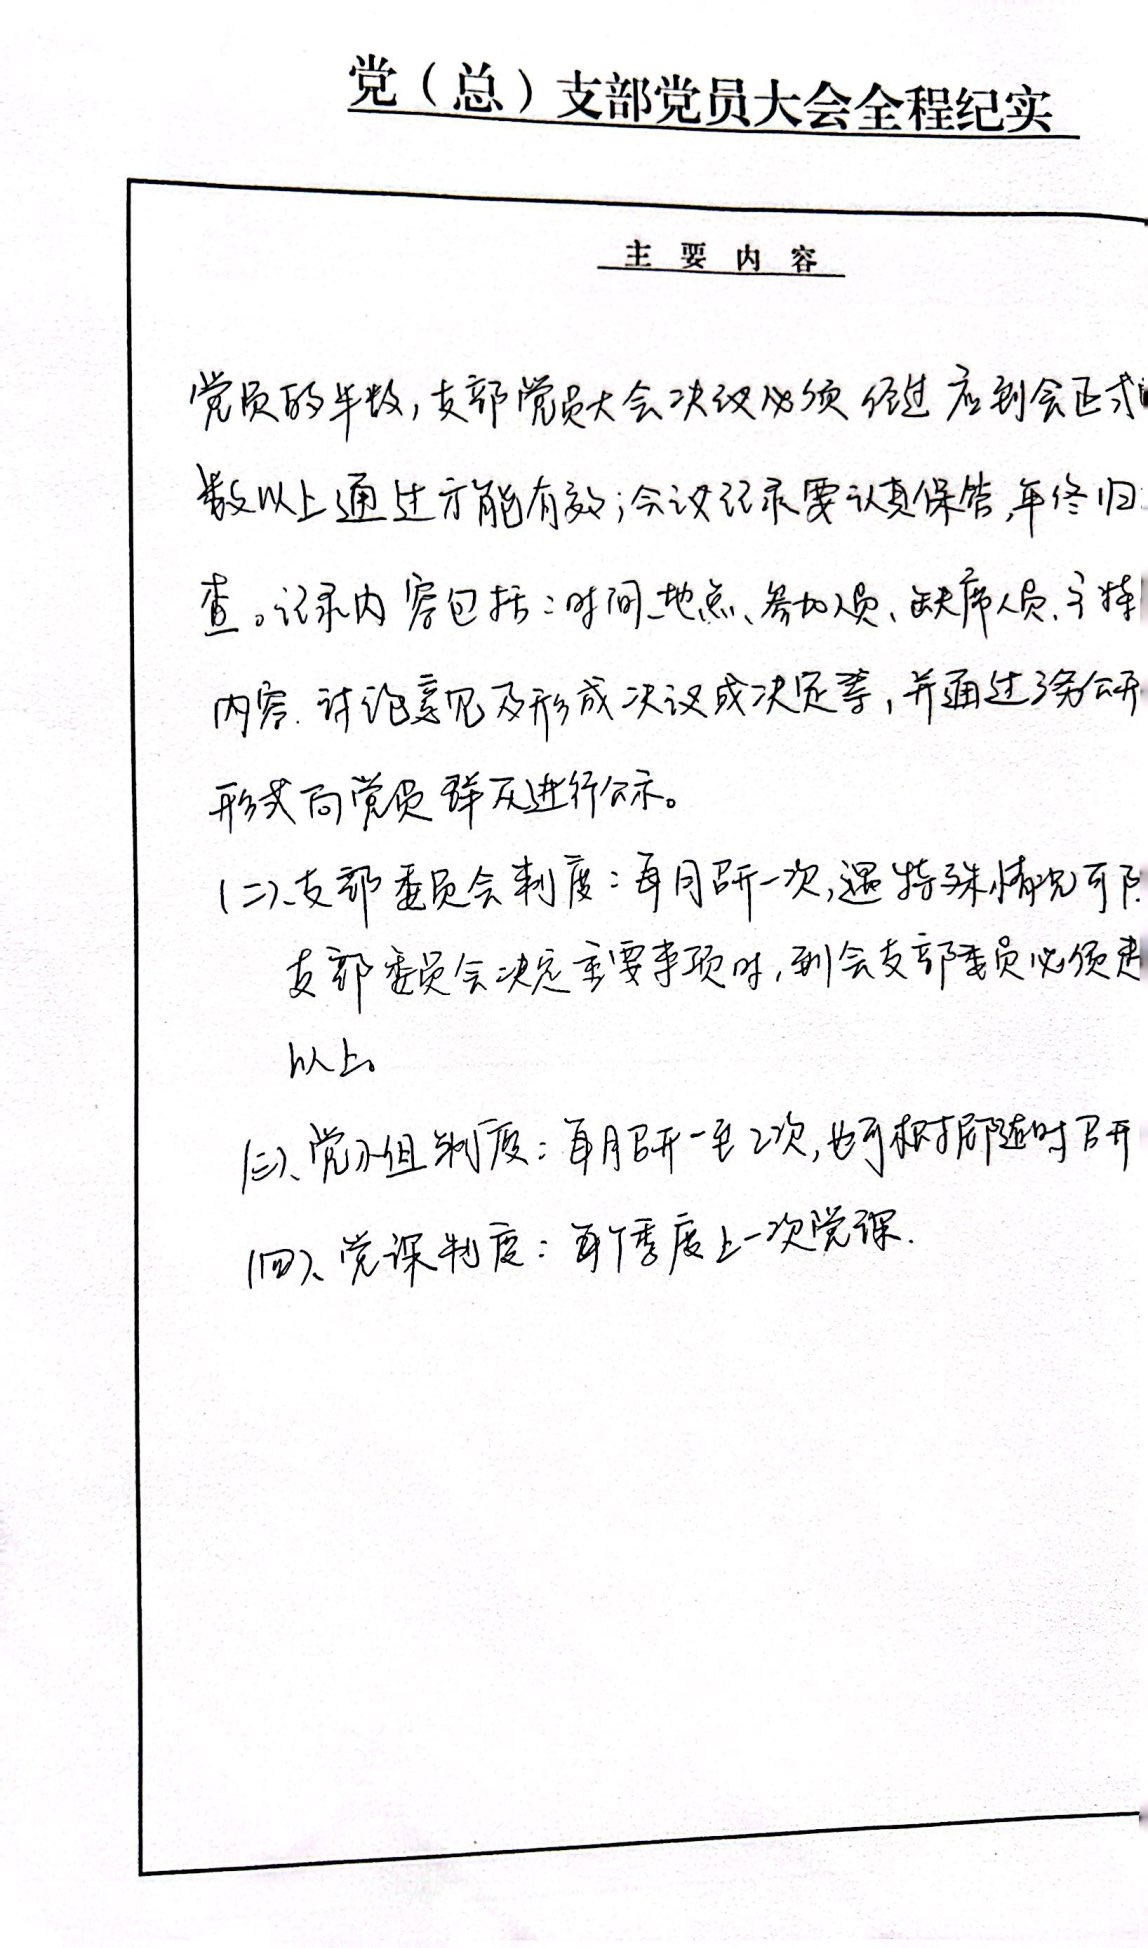 党（总）支部党员大会全程纪实
主要内容
党员的半数，支部党员大会决议必须经过应到会正式
数以上通过才能有效；会议记录要认真保管，年终归
查。记录内容包括：时间、地点、参加人员、缺席人员、主持
内容、讨论意见及形成决议或决定等，并通过务公开
形式向党员群众进行公示。
（二）、支部委员会制度：每月召开一次，遇特殊情况可
支部委员会决定主要事项时，到会支部委员必须
以上。
（三）、党小组制度：每月召开一至2次，也可根据随时召开
（四）、党课制度：每个季度上一次党课.